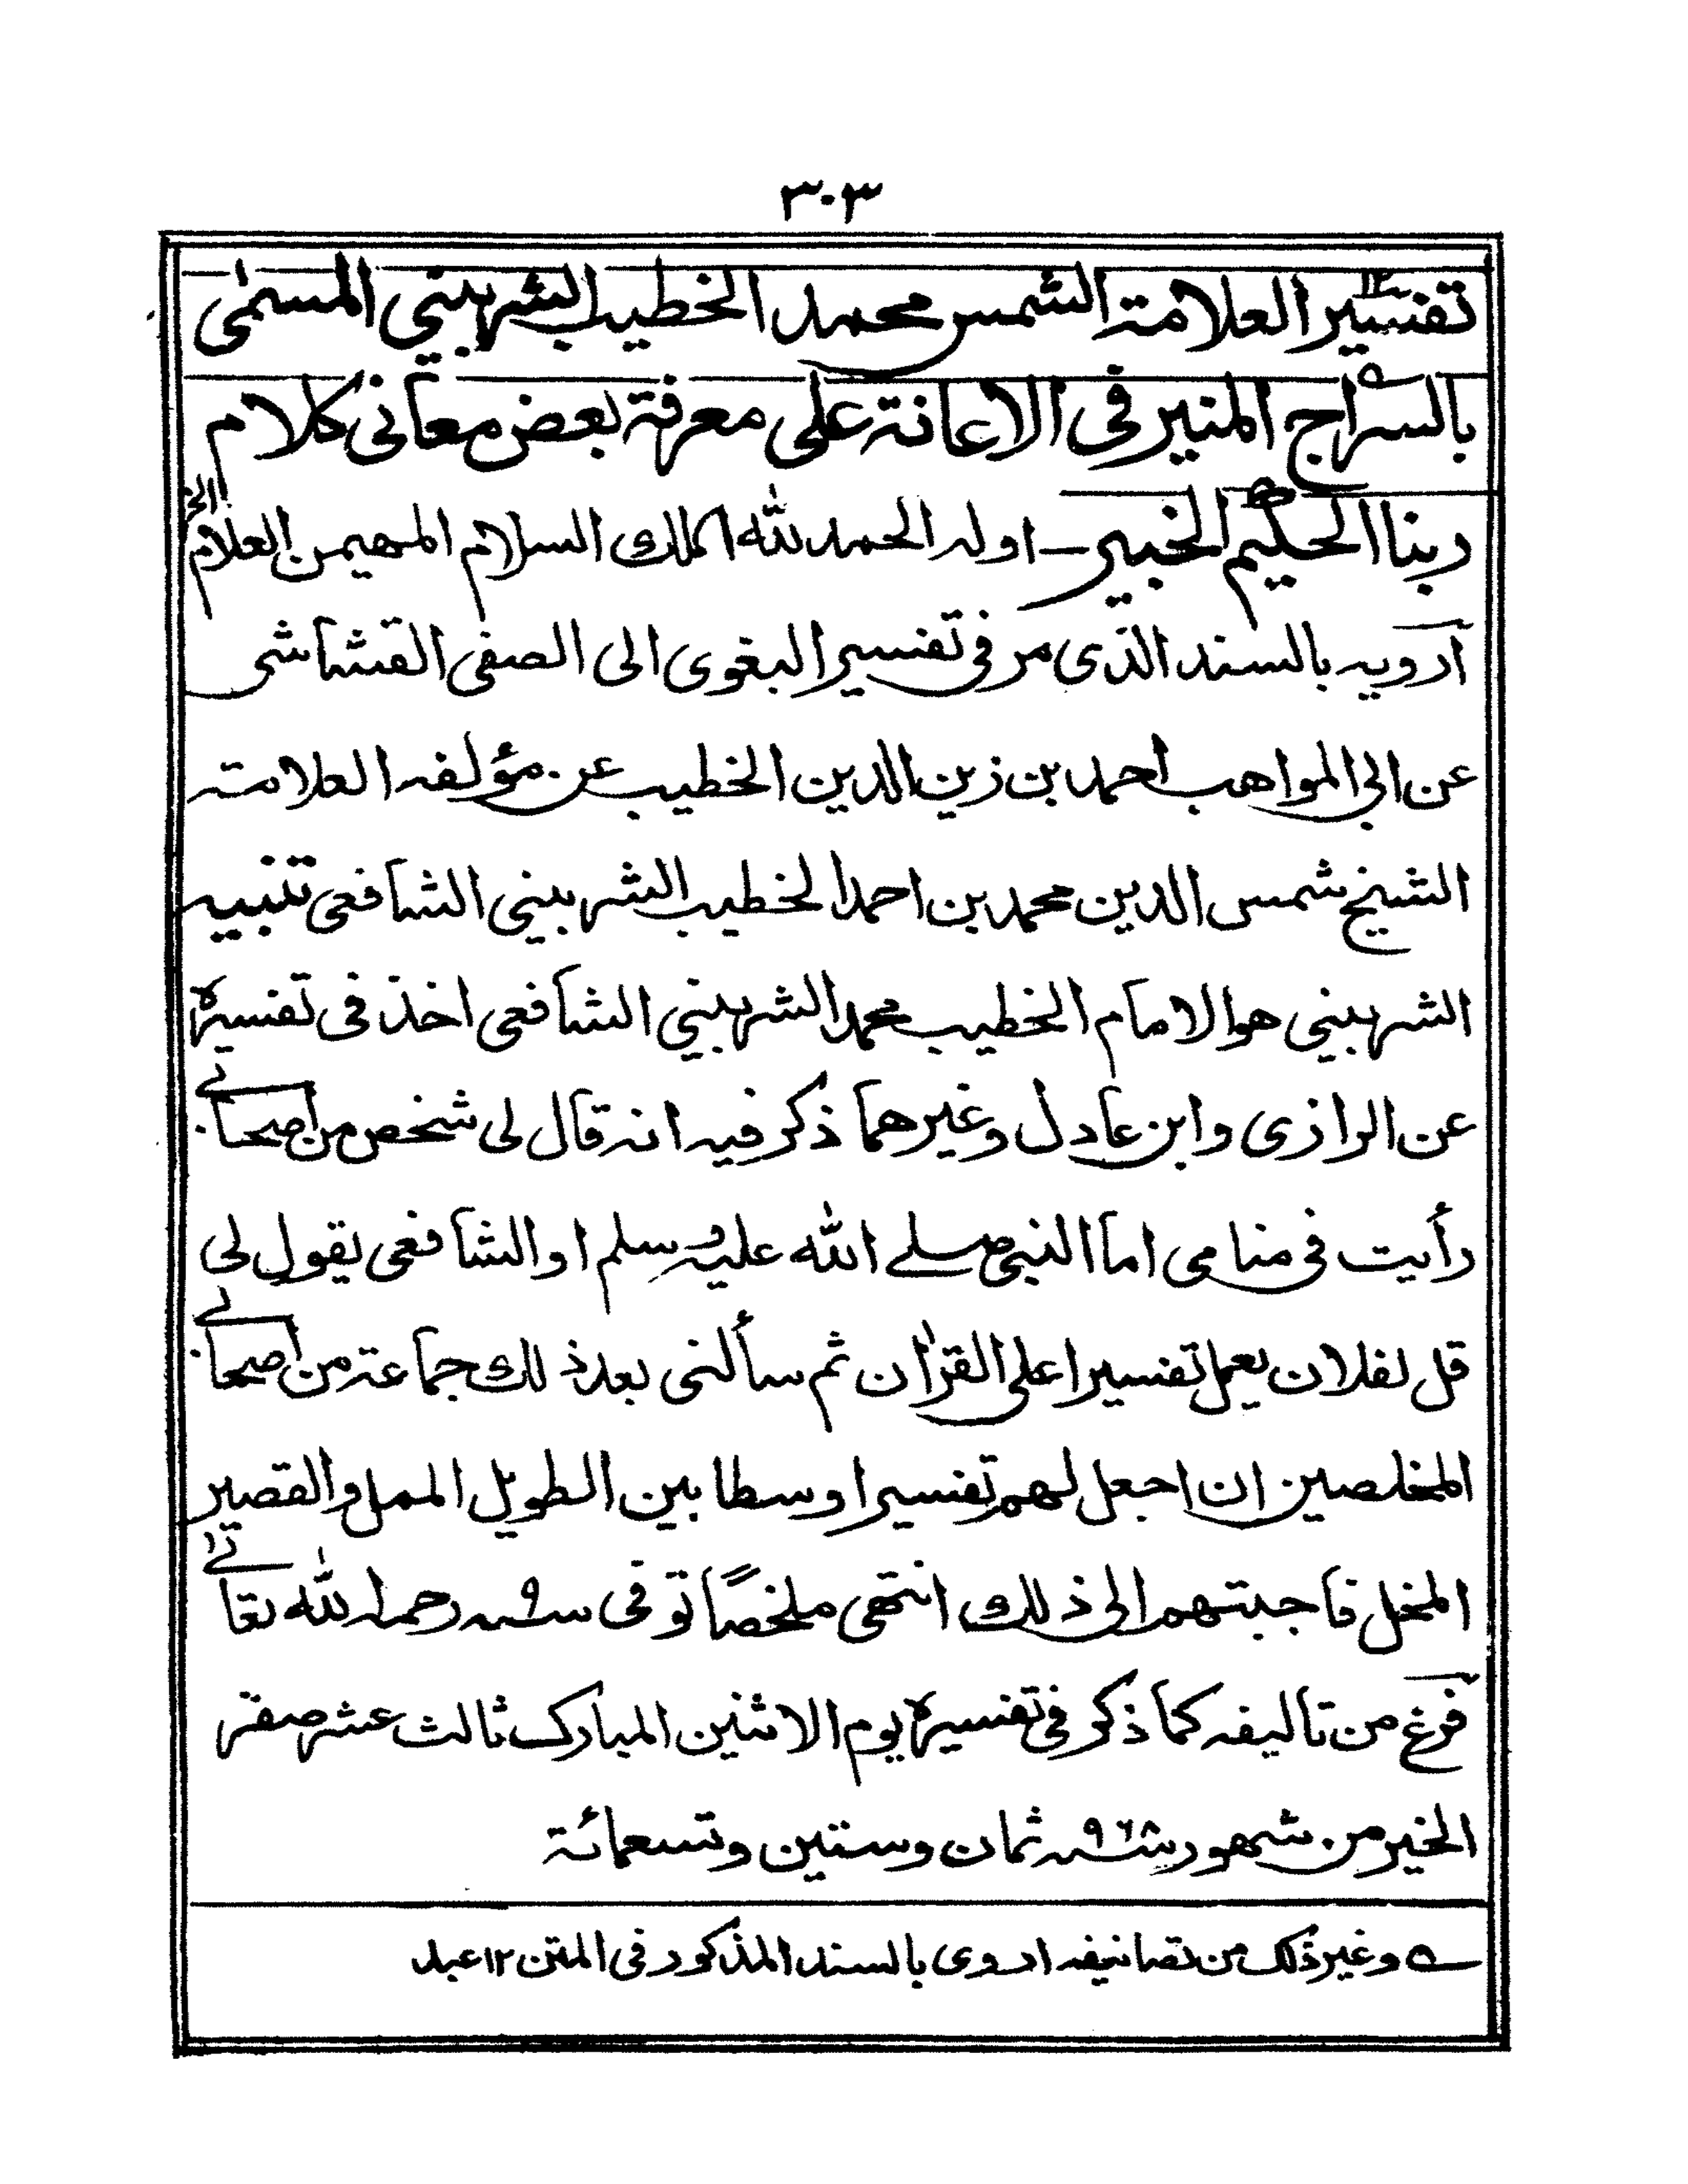 ٣٠٣
تفسير العلامة الشمس محمد الخطيب الشربيني المسمى
بالسراج المنير في الاعانة على معرفة بعض معاني كلام
ربنا الحكيم الخبير ـ اوله الحمد لله الملك السلام المهيمن العلام الخ
أرويه بالسند الذي مر في تفسير البغوى الى الصفى القشاشى
عن ابي المواهب احمد بن زين الدين الخطيب عن مؤلفه العلامة
الشيخ شمس الدين محمد بن احمد الخطيب الشربيني الشافعى تنبيه
الشربيني هو الامام الخطيب محمد الشربيني الشافعى اخذ فى تفسيره
عن الرازى وابن عادل وغيرهما ذكر فيه انه قال لى شخص من اصحابى
رأيت فى منامى اما النبي صلے الله عليه وسلم او الشافعى يقول لى
قل لفلان يعمل تفسيرا على القرآن ثم سألنى بعد ذلك جماعة من اصحابى
المخلصين ان اجعل لهم تفسيرا وسطا بين الطويل الممل والقصير
المخل فاجبتهم الى ذلك انتهى ملخصاً توفى رحمه الله تعالى
فرغ من تاليفه كما ذكر فى تفسيره يوم الاثنين المبارك ثالث عشر صفر
الخير من شهور سنة ٩٦٨ ثمان وستين وتسعمائة
ه وغير ذلك من تصانيفه اروى بالسند المذكور فى المتن ١٢ عبد